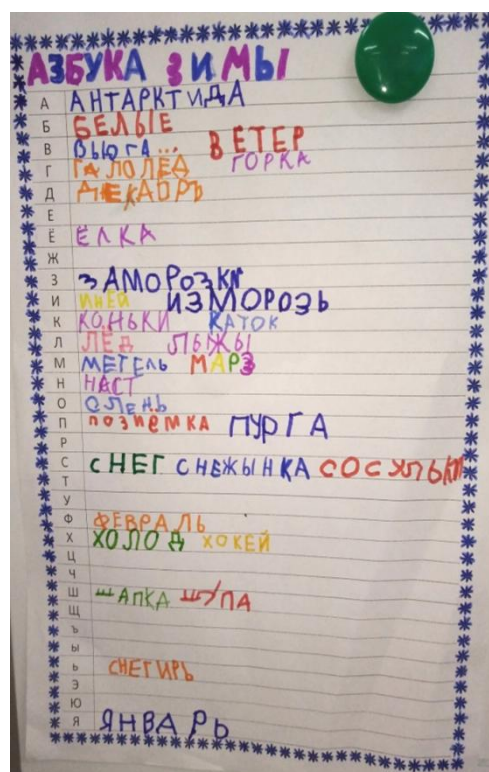 АЗБУКА ЗИМЫ
А АНТАРКТИДА
Б БЕЛЫЕ
В ВЬЮГА... ВЕТЕР
Г ГАЛОЛЁД ГОРКА
Д ДЕКАБРЪ
Е
Ё ЁЛКА
Ж
З ЗАМОРОЗКИ
И ИНЕЙ ИЗМОРОЗЬ
К КОНЬКИ КАТОК
Л ЛЁД ЛЫЖЫ
М МЕТЕЛЬ МАРЗ
Н НАСТ
О ОЛЕНЬ
П ПОЗЁМКА ПУРГА
Р
С СНЕГ СНЕЖЫНКА СОСУЛЬКИ
Т
У
Ф ФЕВРАЛЬ
Х ХОЛОД ХОКЕЙ
Ц
Ч
Ш ШАПКА
Щ
Ъ
Ы
Ь СНЕГИРЬ
Э
Ю
Я ЯНВАРЬ